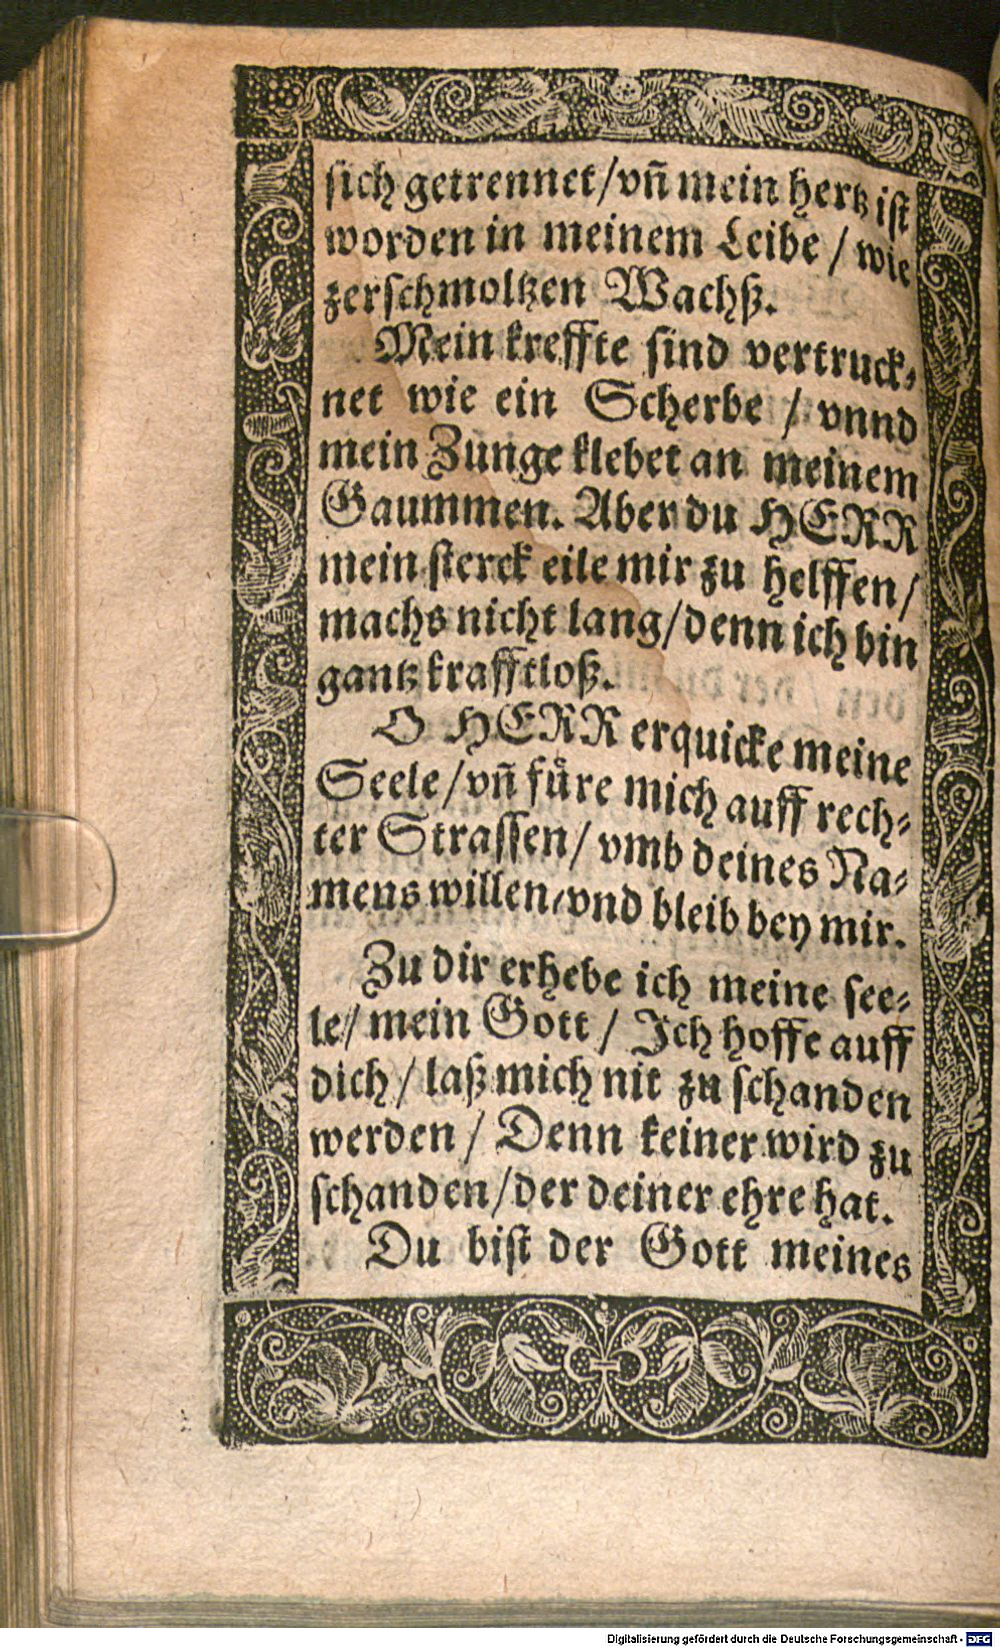 sich getrennet/vñ mein hertz ist
worden in meinem Leibe / wie
zerschmoltzen Wachß.
Mein kreffte sind vertruck⸗
net wie ein Scherbe / vnnd
mein Zunge klebet an meinem
Gaummen. Aber du HERR
mein sterck eile mir zu helffen/
machs nicht lang/denn ich bin
gantz krafftloß.
O HERR erquicke meine
Seele/vñ fuͤre mich auff rech⸗
ter Strassen/ vmb deines Na⸗
mens willen/vnd bleib bey mir.
Zu dir erhebe ich meine see⸗
le/ mein Gott / Ich hoffe auff
dich/ laß mich nit zu schanden
werden / Denn keiner wird zu
schanden/der deiner ehre hat.
Du bist der Gott meines
Digitalisierung gefördert durch die Deutsche Forschungsgemeinschaft - DFG